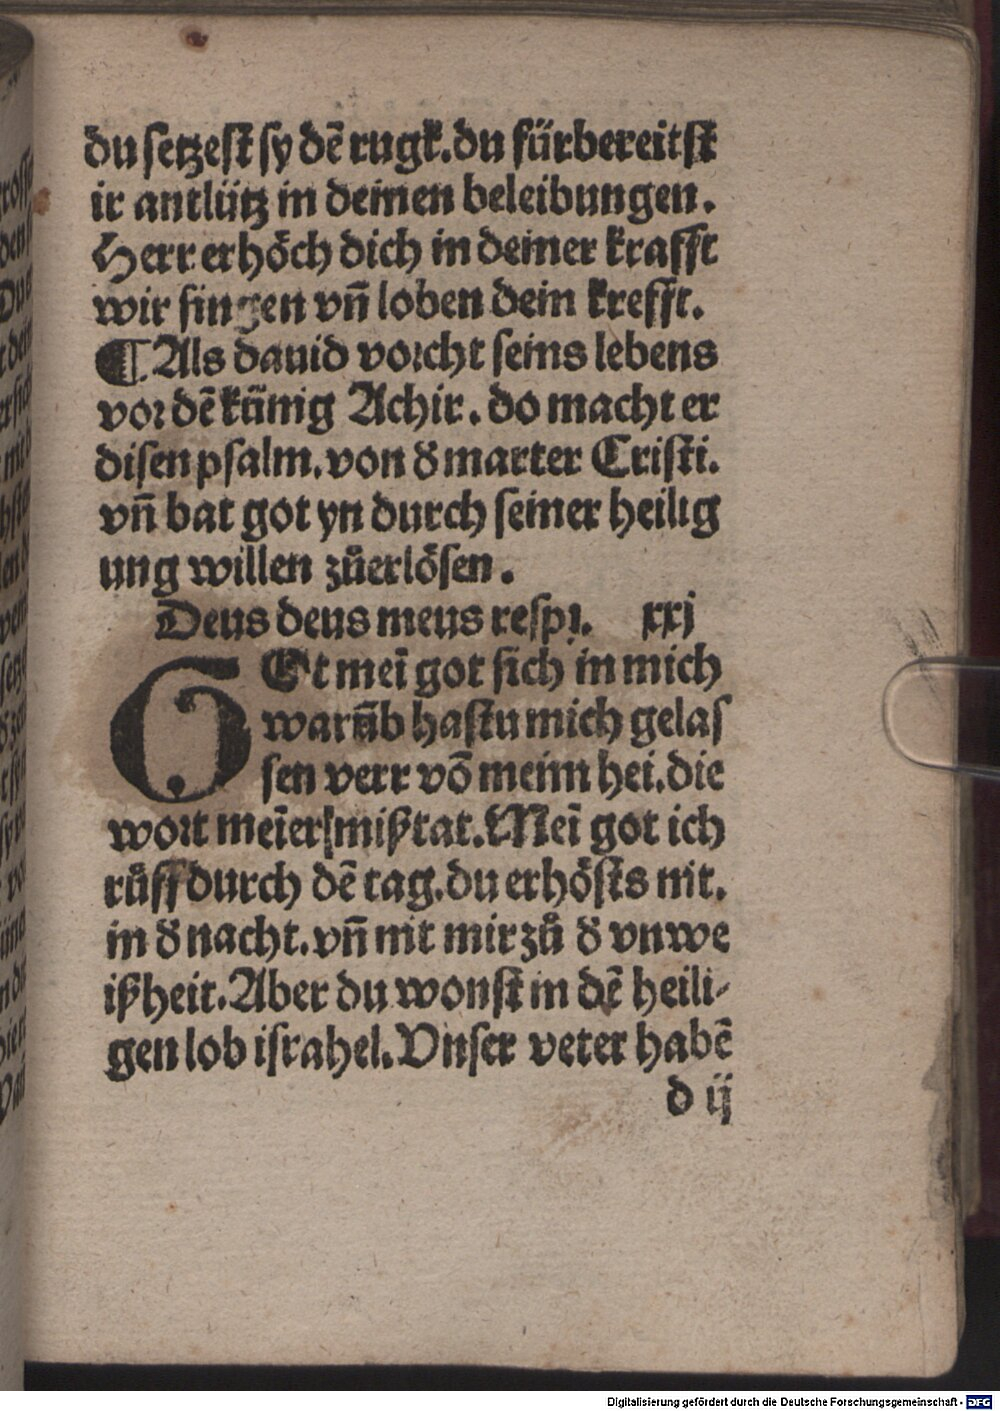 du setzest sy dē rugk. du fürbereitst
ir antlütz in deinen beleibungen.
Herr erhöch dich in deiner krafft
wir singen vñ loben dein krefft.
¶ Als dauid vorcht seins lebens
vor dē künig Achir. do macht er
disen psalm. von d̕ marter Cristi.
vñ bat got yn durch seiner heilig
ung willen zůerlösen.
Deus deus meus respi. xxj
GEt mei᷑ got sich in mich
warūb hastu mich gelas
sen verr vō meim hei. die
wort meīer mißtat. Meī got ich
růff durch dē tag. du erhösts nit.
in d̕ nacht. vñ nit mir zů d̕ vnwe
ißheit. Aber du wonst in dē heili-
gen lob israhel. Vnser veter habē
d ij
Digitalisierung gefördert durch die Deutsche Forschungsgemeinschaft - DFG